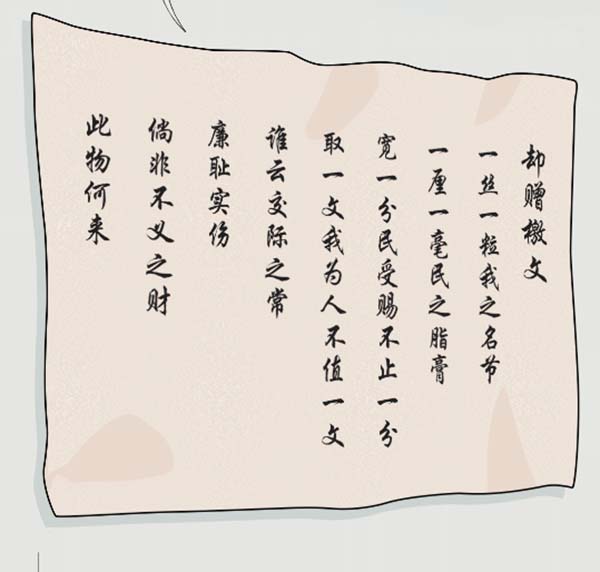 却赠檄文
一丝一粒我之名节
一厘一毫民之脂膏
宽一分民受赐不止一分
取一文我为人不值一文
谁云交际之常
廉耻实伤
倘非不义之财
此物何来